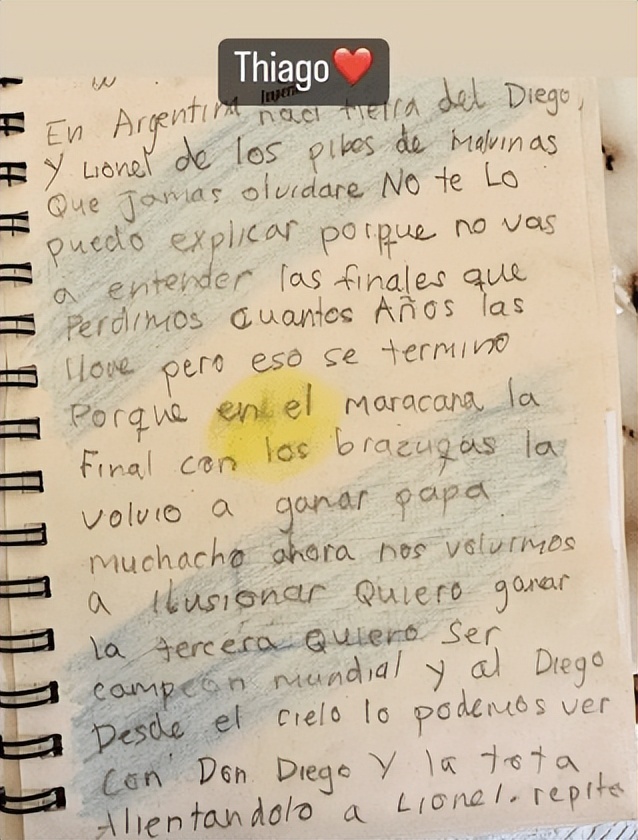 Thiago❤️
En Argentina naci tierra del Diego,
Y Lionel de los pibes de Malvinas
Que jamas olvidare No te Lo
puedo explicar porque no vas
a entender las finales que
Perdimos cuantos Años las
llove pero eso se termino
Porque en el maracana la
Final con los brazugas la
volvio a ganar papa
muchacho ahora nos volvimos
a Ilusionar Quiero ganar
la tercera Quiero Ser
campeon mundial y al Diego
Desde el cielo lo podemos ver
con Don Diego Y la tota
Alientandolo a Lionel. repita